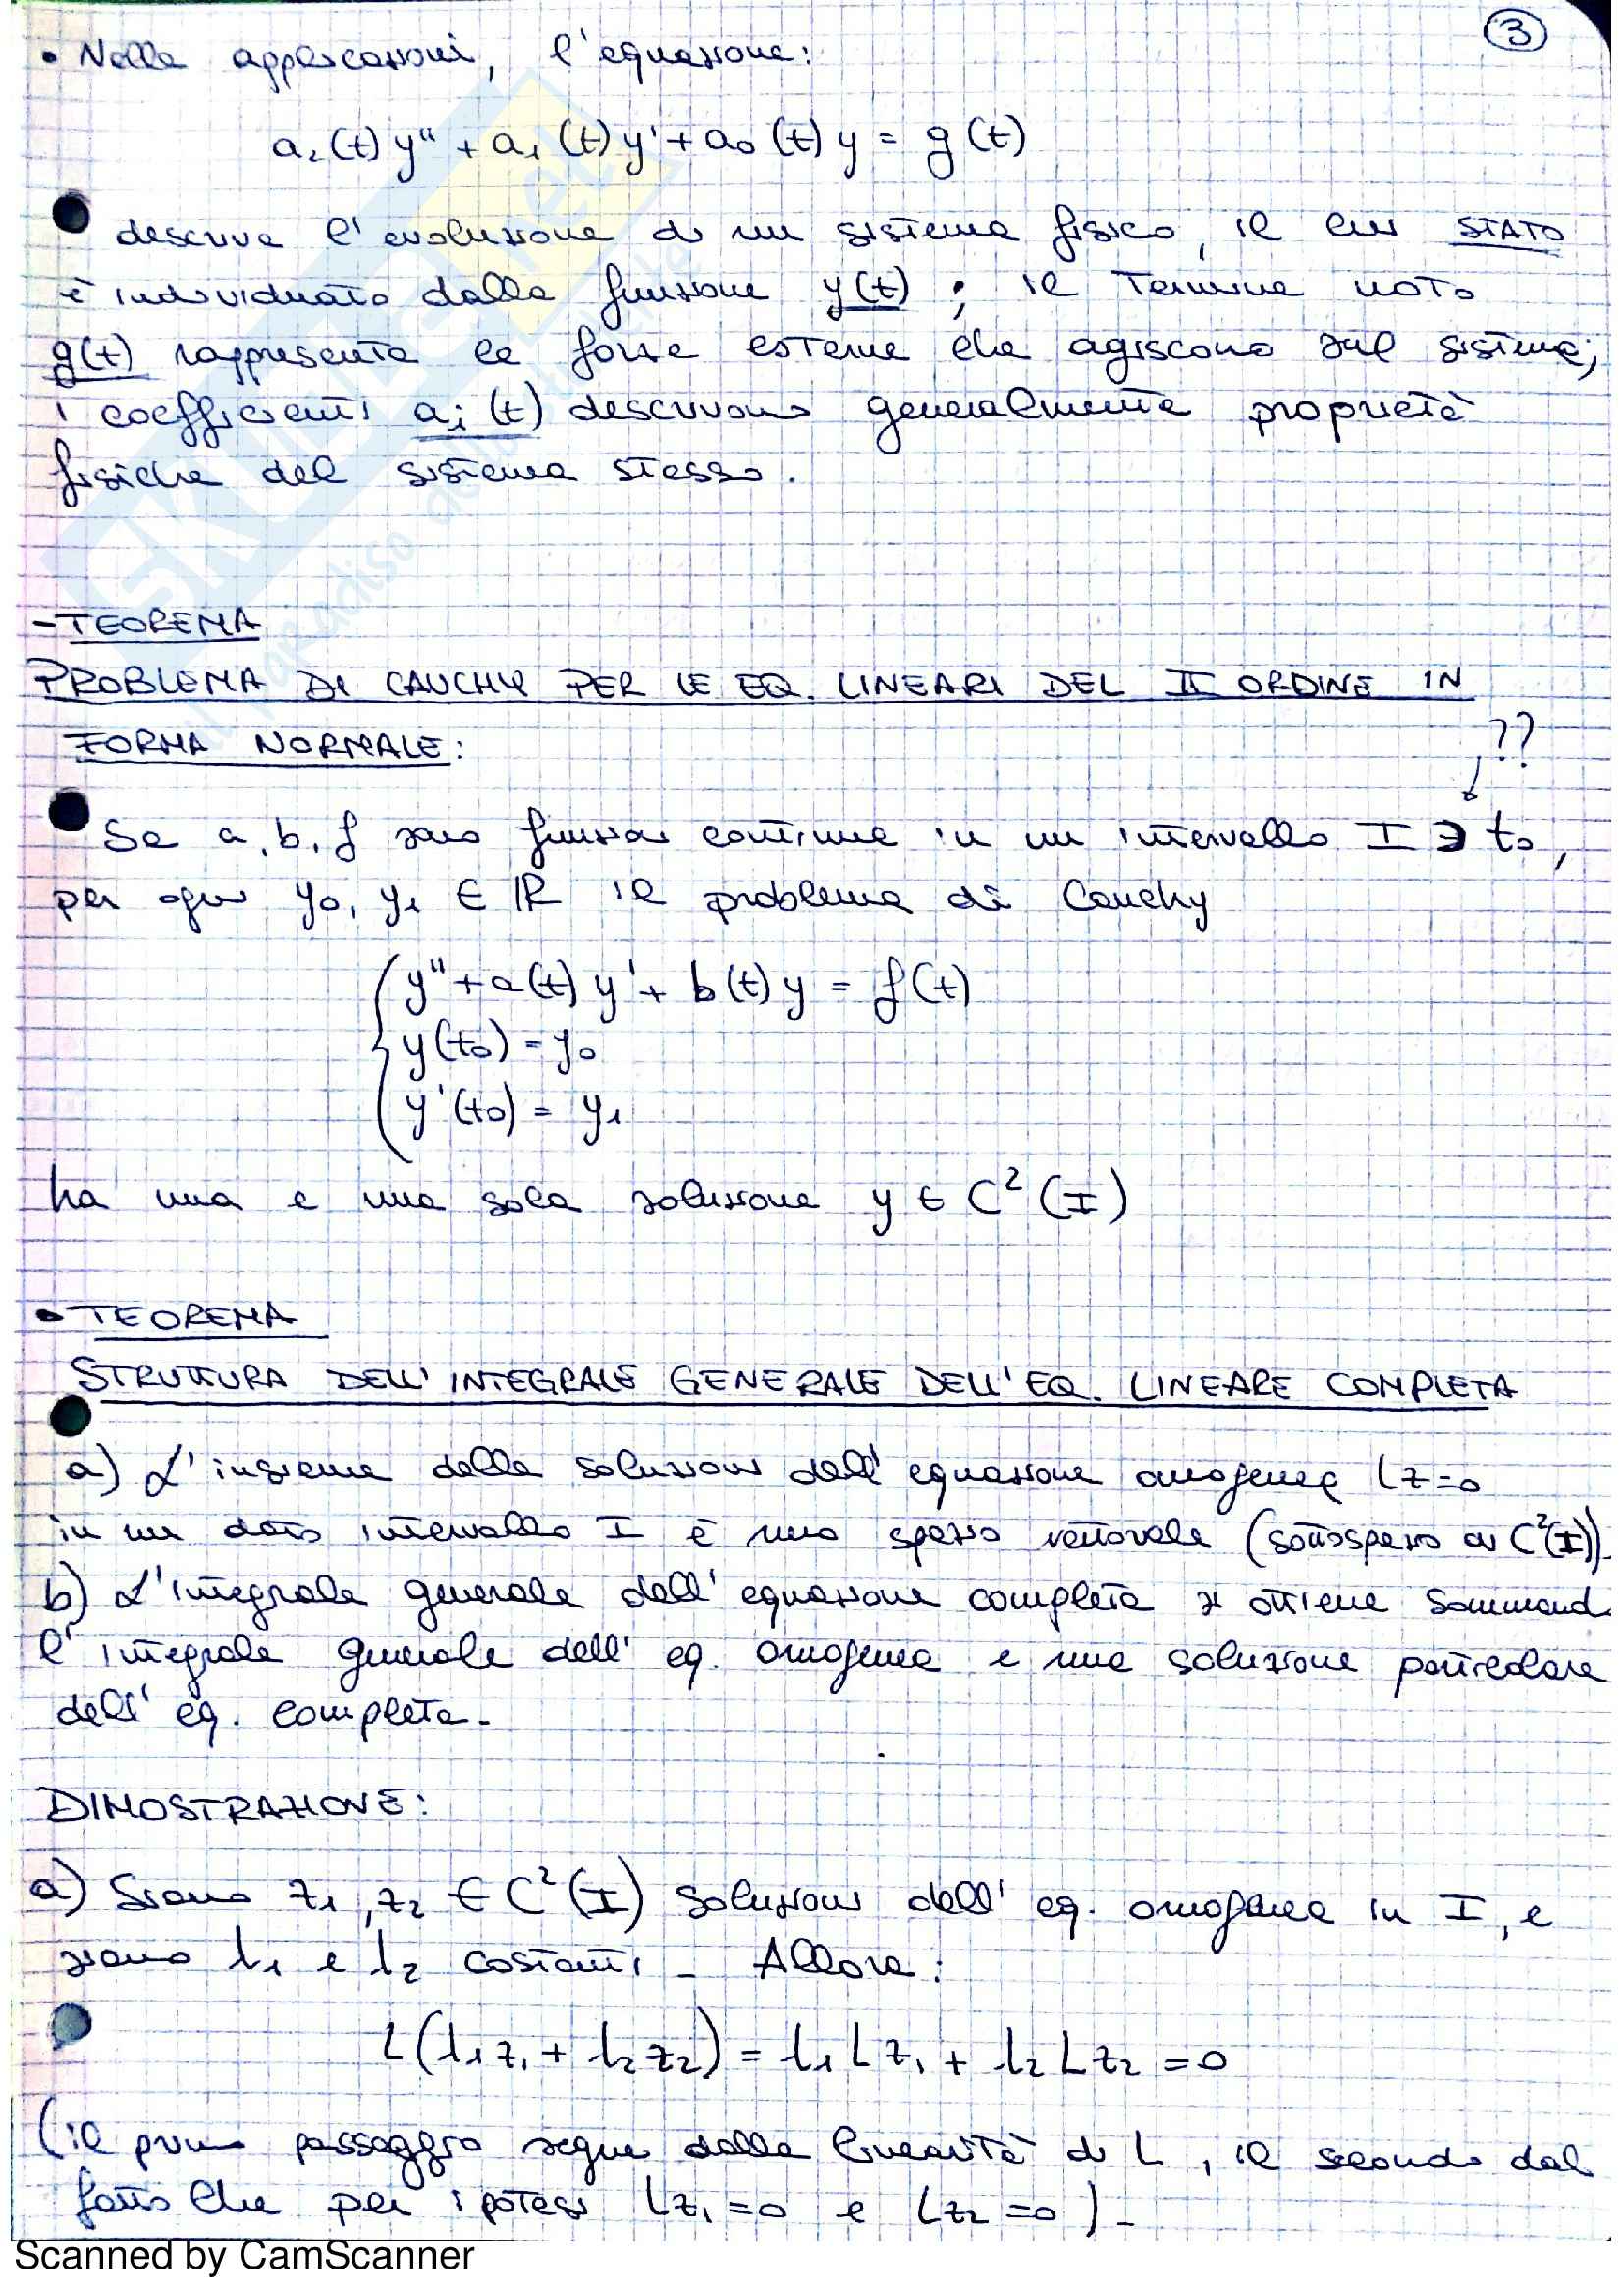 3
• Nelle applicazioni, l'equazione:
a₂(t)y" + a₁(t)y' + a₀(t)y = g(t)
descrive l'evoluzione di un sistema fisico, il cui STATO
è individuato dalla funzione y(t); il termine noto
g(t) rappresenta le forze esterne che agiscono sul sistema;
i coefficienti aᵢ(t) descrivono generalmente proprietà
fisiche del sistema stesso.
- TEOREMA
PROBLEMA DI CAUCHY PER LE EQ. LINEARI DEL II ORDINE IN
FORMA NORMALE:
??
Se a, b, f sono funzioni continue in un intervallo I ∋ t₀,
per ogni y₀, y₁ ∈ ℝ il problema di Cauchy
y" + a(t)y' + b(t)y = f(t)
y(t₀) = y₀
y'(t₀) = y₁
ha una e una sola soluzione y ∈ C²(I)
• TEOREMA
STRUTTURA DELL'INTEGRALE GENERALE DELL'EQ. LINEARE COMPLETA
a) L'insieme delle soluzioni dell'equazione omogenea Lz=0
in un dato intervallo I è uno spazio vettoriale (sottospazio di C²(I)).
b) L'integrale generale dell'equazione completa si ottiene sommand
l'integrale generale dell'eq. omogenea e una soluzione particolare
dell'eq. completa.
DIMOSTRAZIONE:
a) Siano z₁, z₂ ∈ C²(I) soluzioni dell'eq. omogenea in I, e
siano λ₁ e λ₂ costanti. Allora:
L(λ₁z₁ + λ₂z₂) = λ₁Lz₁ + λ₂Lz₂ = 0
(il primo passaggio segue dalla linearità di L, il secondo dal
fatto che per ipotesi Lz₁=0 e Lz₂=0).
Scanned by CamScanner